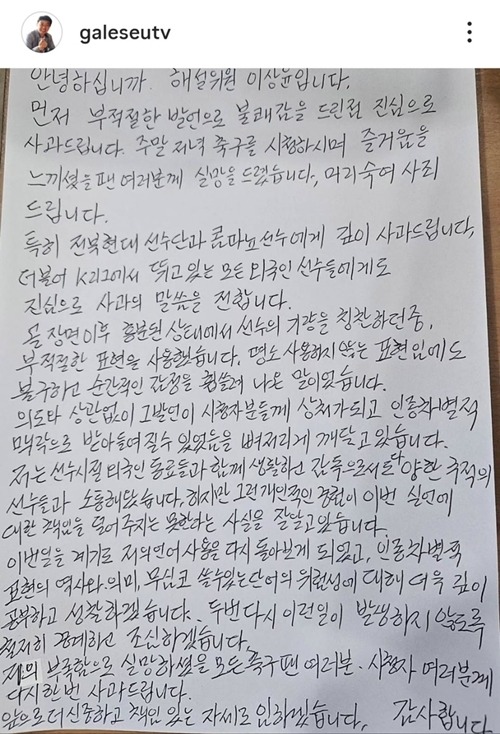 galeseutv
안녕하십니까. 해설위원 이상윤입니다.
먼저 부적절한 발언으로 불쾌감을 드린점 진심으로
사과드립니다. 주말 저녁 축구를 시청하시며 즐거움을
느끼셨을 팬 여러분께 실망을 드렸습니다, 머리숙여 사죄
드립니다.
특히 전북현대 선수단과 콤파뇨선수에게 깊이 사과드립니다,
더불어 K리그에서 뛰고 있는 모든 외국인 선수들에게도
진심으로 사과의 말씀을 전합니다.
골 장면이후 흥분된 상태에서 선수의 기량을 칭찬하던중,
부적절한 표현을 사용했습니다. 평소 사용하지 않는 표현임에도
불구하고 순간적인 감정을 휩쓸려 나온 말이었습니다.
의도와 상관없이 그발언이 시청자분들께 상처가되고 인종차별적
맥락으로 받아들여 질수 있었음을 뼈저리게 깨닫고 있습니다.
저는 선수시절 외국인 동료들과 함께 생활하고 감독으로서도 다양한 국적의
선수들과 소통해왔습니다. 하지만 그런 개인적인 경험이 이번 실언에
대한 책임을 덜어 주지는 못한다는 사실을 잘알고있습니다.
이번일을 계기로 저의언어 사용을 다시 돌아보게 되었고, 인종차별적
표현의 역사와 의미, 무심코 쓸수있는단어의 위험성에 대해 더욱 깊이
공부하고 성찰하겠습니다. 두번다시 이런일이 발생하지 않도록
철저히 경계하고 조심하겠습니다.
저의 부족함으로 실망하셨을 모든축구팬 여러분. 시청자 여러분께
다시한번 사과드립니다.
앞으로 더 신중하고 책임 있는 자세로 임하겠습니다, 감사합니다